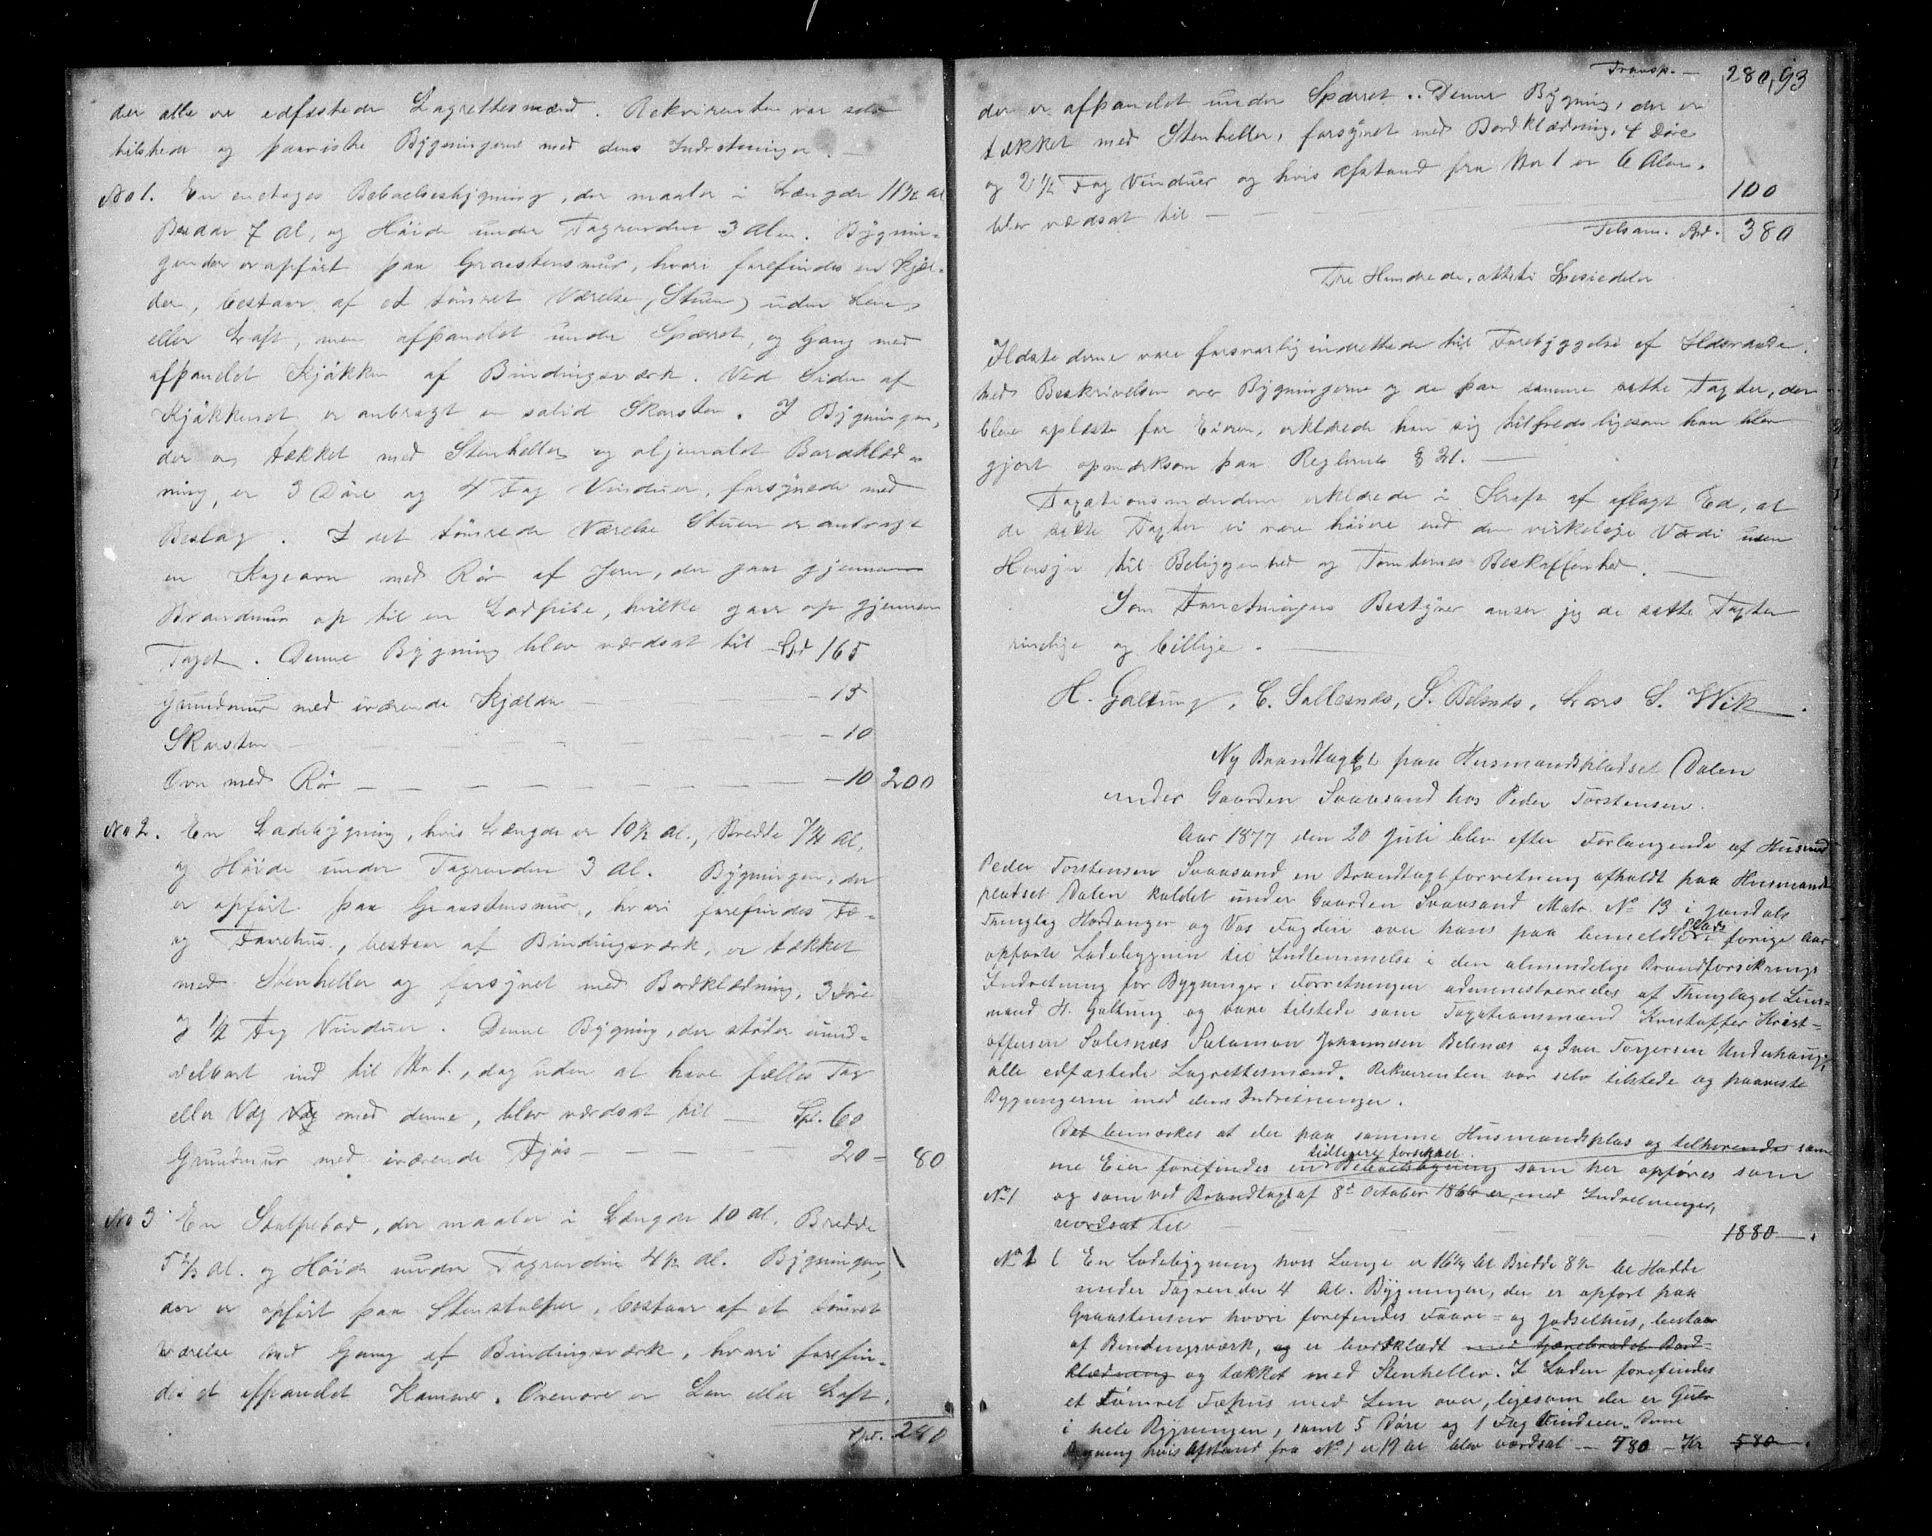 der alle ere edfæstede Lagrettesmænd. Rekvirenten var selv
tilstede og paaviste Bygningerne med dens Indretninger. —
No 1. En enetages Beboelsesbygning, der maaler i Længde 11 1/2 Al
Bredde 7 Al, og Höide under Tagrenden 3 Alen. Bygnin-
gen der er opført paa Graastensmur, hvori forefindes en Kjel-
der, bestaar af et tømret Værelse (Stuen) uden Lem
eller Loft, men afpanelet under Spærret, og Gang med
afpanelet Kjøkken af Bindingsværk. Ved Siden af
Kjøkkenet er anbragt en solid Skorsten. I Bygningen,
der er tækket med Stenheller og oljemalet Bordklæd-
ning, er 3 Döre og 4 Fag Vinduer, forsynede med
Beslag. I det tømrede Værelse Stuen er anbragt
en Kogeovn med Rör af Jern, der gaar gjennem
Brandmur op til en Lodpibe, hvilke gaar op gjennem
Taget. Denne Bygning blev værdsat til Spd 165
Grundmur med iværende Kjelder — — 15
Skorsten — — — — 10
Ovn med Rör — — — — 10 200
No 2. En Ladebygning, hvis Længde er 10 1/2 Al., Bredde 7 1/4 Al,
og Höide under Tagrenden 3 Al. Bygningen, der
er opfört paa Graastensmur, hvori forefindes Fæ-
og Faarehus, bestaar af Bindingsværk, er tækket
med Stenheller og forsynet med Bordklædning, 3 Döre
og 1/2 Fag Vinduer. Denne Bygning, der støder umid-
delbart ind til No 1., dog uden at have fælles Tag
eller Væg væg med denne, blev værdsat til — Spd. 60
Grundmur med iværende Fjøs — — — — 20 = 80
No 3 En Stolpebod, der maaler i Længde 10 Al. Bredde
5 2/3 Al. og Höide under Tagrenden 4 1/2 Al. Bygningen,
der er opfört paa Stenstolper, bestaar af et tømret
Værelse med Gang af Bindingsværk, hvori forefin-
des et afpanelet Kammer. Ovenover er Lem eller Loft,
Spd. 280
Transp. — 280, 93
der er afpanelet under Spærret. Denne Bygning, der er
tækket med Stenheller, forsynet med Bordklædning, 4 Döre
og 2 1/2 Fag Vinduer og hvis Afstand fra No 1 er 6 Alen.
blev værdsat til — — — 100
Tilsam. Spd. 380
Tre Hundrede, otteti Speciedaler
Ildstederne vare forsvarlig indrettede til Forebyggelse af Ildsvaade.
Med Beskrivelsen over Bygningerne og de paa samme satte Taxter, der
bleve oplæste for Eieren, erklærede han sig tilfreds ligesom han blev
gjort opmærksom paa Reglernes § 21. —
Taxationsmændene erklærede i Kraft af aflagt Ed, at
de satte Taxter ei vare höiere end den virkelige Værdi uden
Hensyn til Beliggenhed og Tomternes Beskaffenhed. —
Som Forretningens Bestyrer anser jeg de satte Taxter
rimelige og billige. —
H. Galtung, C. Sallesnæs, S. Belsnæs, Lars S. Wik.
Ny Brandtaxt paa Husmandspladset Dalen
under Gaarden Svaasand hos Peder Torstensen.
Aar 1877 den 20 Juli blev efter Forlangende af Husmd
Peder Torstensen Svaasand en Brandtaxtforretning afholdt paa Husmands
pladset Dalen kaldet under Gaarden Svaasand Matr. No 13 i Jondals
Thinglag Hardanger og Vos Fogderi over hans paa bemeldte Plads i forige Aar
opførte Ladebygning til Indlemmelse i den almindelige Brandforsikrings
Indretning for Bygninger. Forretningen administreredes af Thinglagets Lens-
mand H. Galtung og vare tilstede som Taxationsmænd Kristoffer Krist-
offersen Solesnæs Salamon Johannesen Belsnæs og Iver Torgersen Underhaug,
alle edfæstede Lagrettesmænd. Rekvirenten var selv tilstede og paaviste
Bygningerne med dens Indretninger.
Det bemærkes at der paa samme Husmandsplas og tilhørendes sam
me Eier forefindes en tidligere forsikret Beboelsbygning som her opføres som
No 1 og som ved Brandtaxt af 8d October 1866 er, med Indretninger,
værdsat til — — — 1880 —.
No 1 En Ladebygning hvis Længe er 16 1/2 Al Bredde 8 1/2 Al Højde
under Tagrenden 4 Al. Bygningen, der er opført paa
Graastensmur hvori forefindes Faare- og Gjødselhus, bestaar
af Bindingsværk, og er bordklædt med tjærebredet Bord-
klædning og tækket med Stenheller. I Laden forefindes
et Tømret Fæhus med Lem over, ligesom der er Gulv
i hele Bygningen, samt 5 Döre og 1 Fag Vinduer. Denne
Bygning hvis Afstand fra No 1 er 19 Al blev værdsat — 580 — Kr 580 —.